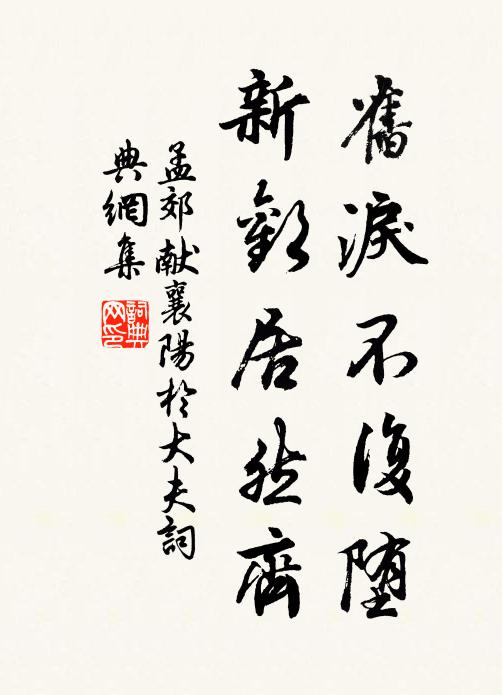 舊淚不復墮
新歡居然齊
孟郊献襄陽於大夫詞
典網集
詞典
网印